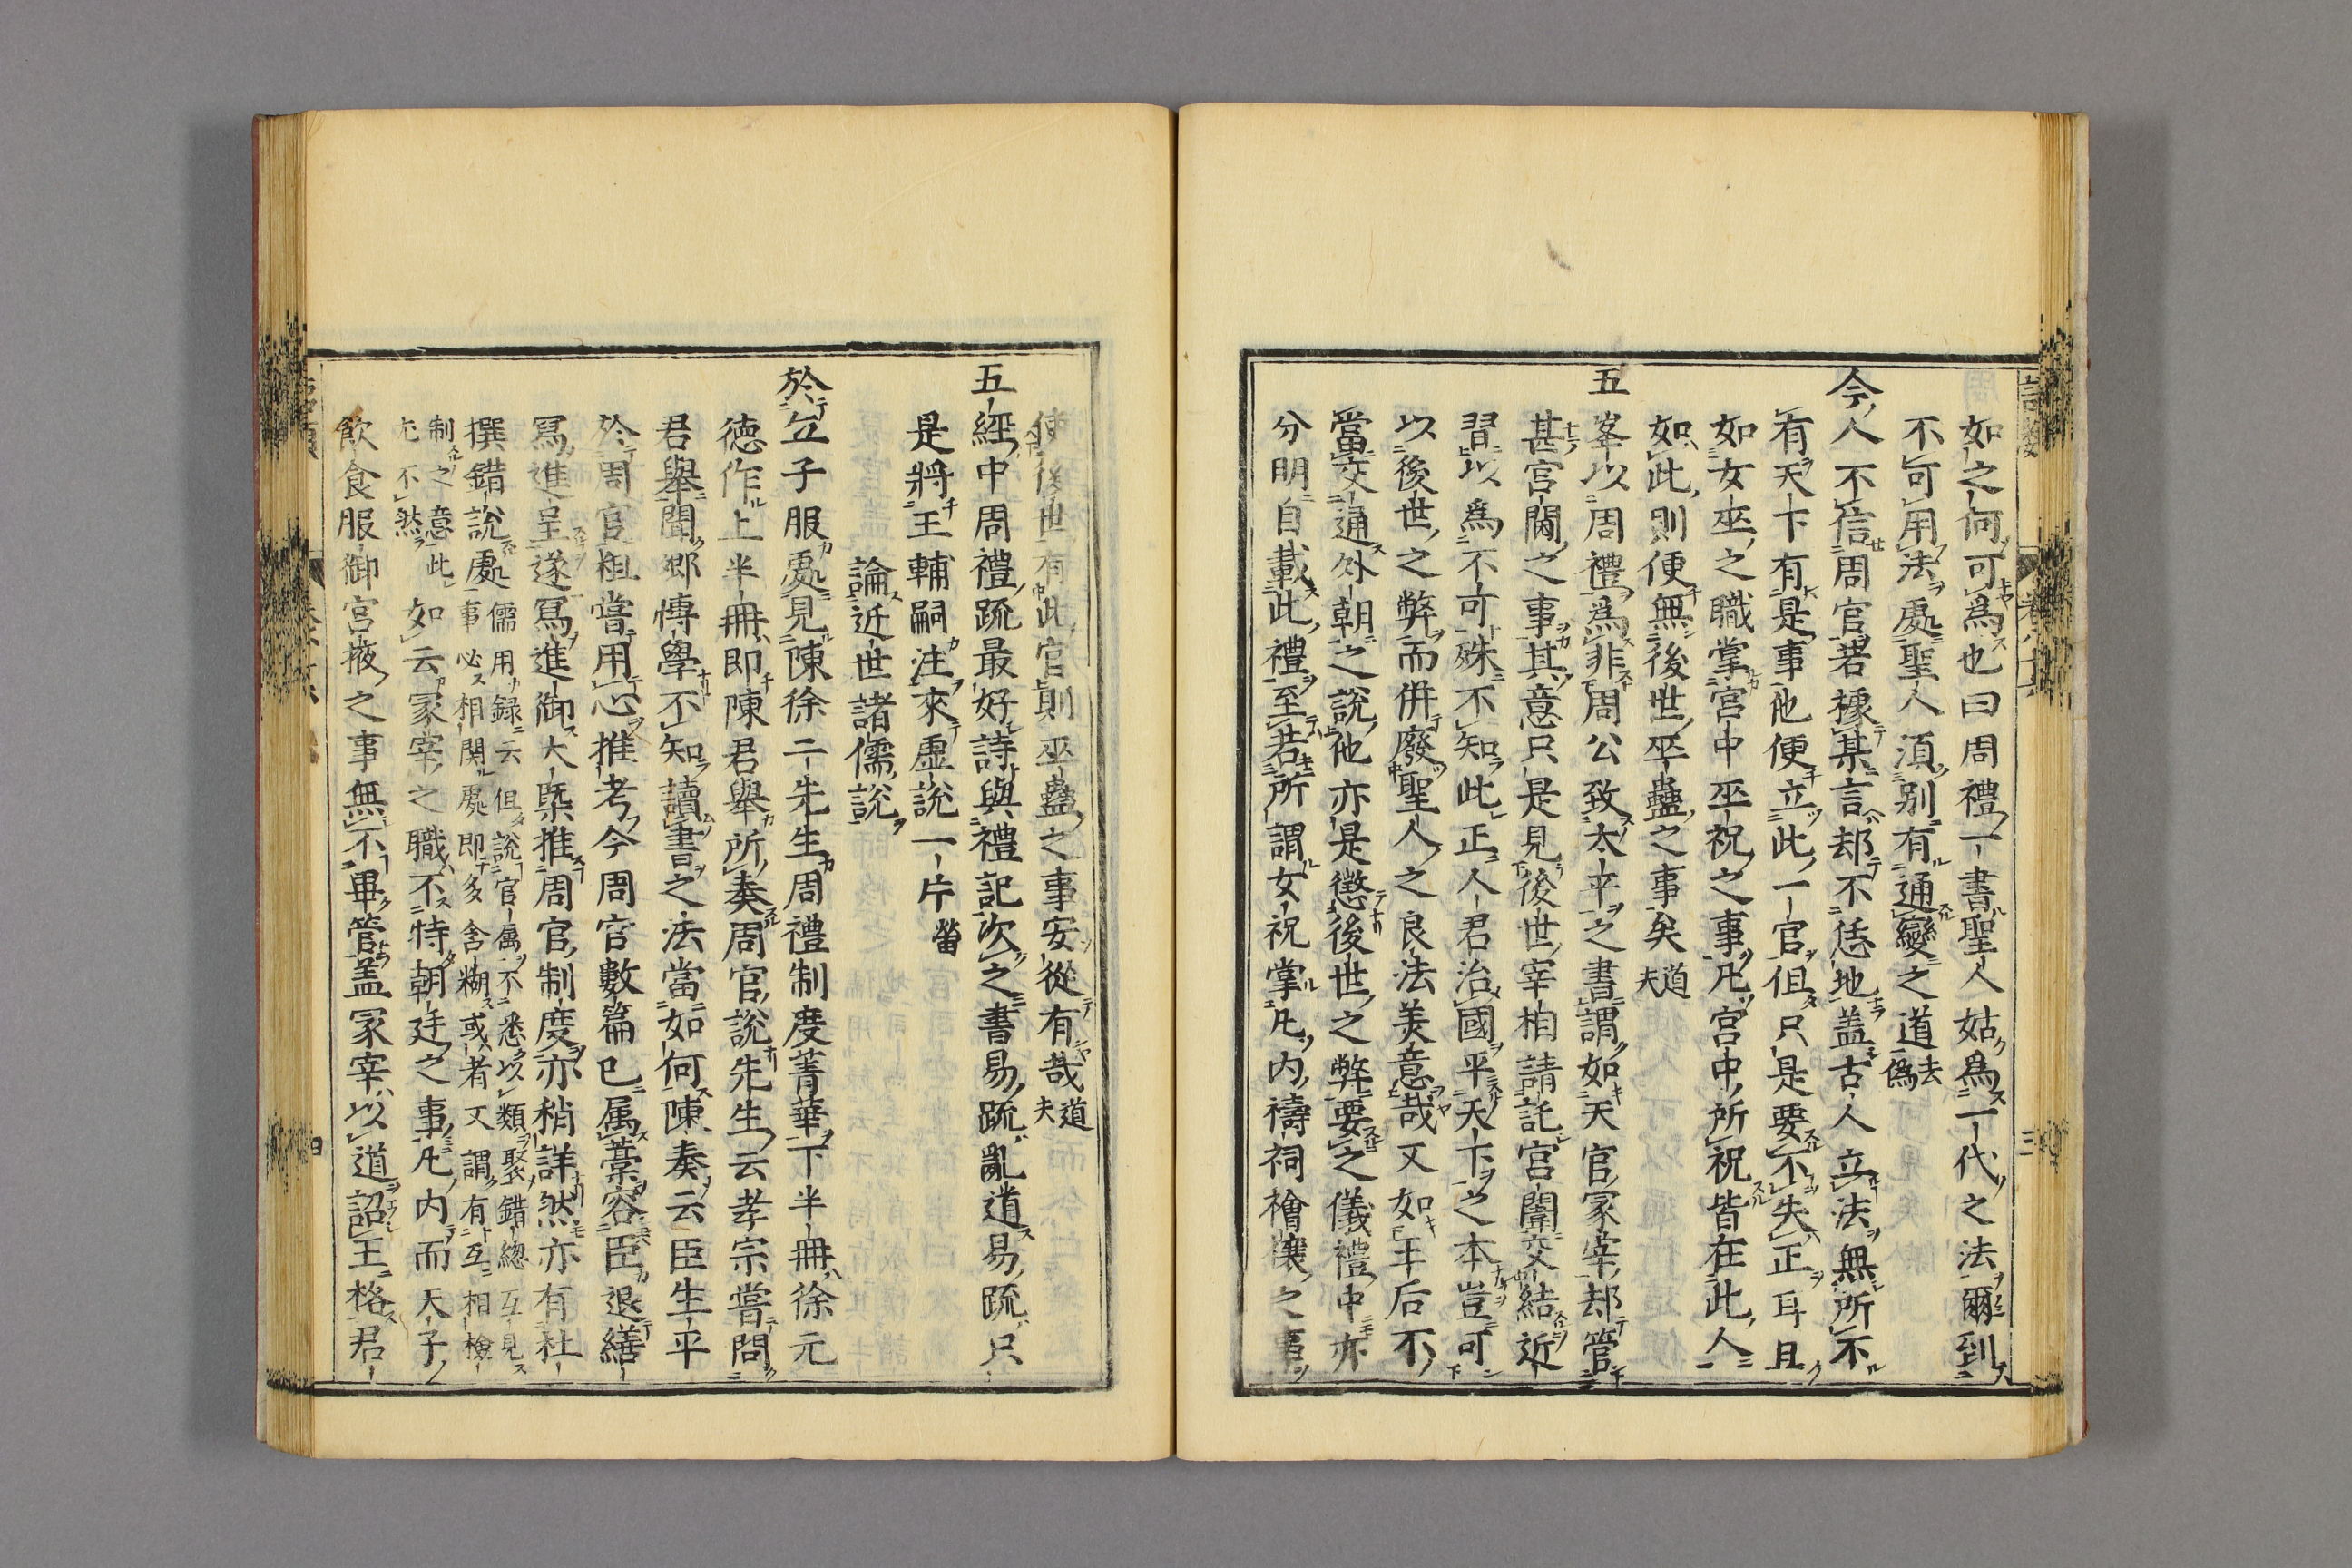 如之何可為也曰周禮一書聖人姑為一代之法爾到
不可用法處聖人須別有通變之道 去偽
今人不信周官若據某言却不恁地盖古人立法無所不
有天下有是事他便立此一官但只是要不失正耳且
如女巫之職掌宮中巫祝之事凡宮中所祝皆在此人
如此則便無後世巫蠱之事矣 道夫
五峯以周禮為非周公致太平之書謂如天官冢宰却管
甚宮閫之事其意只是見後世宰相請託宮闈交結近
習以為不可殊不知此正人君治國平天下之本豈可
以後世之弊而併廢聖人之良法美意哉又如王后不
當交通外朝之說他亦是懲後世之弊要之儀禮中亦
分明自載此禮至若所謂女祝掌凡內禱祠禬禳之事
使後世有此官則巫蠱之事安從有哉 道夫
五經中周禮疏最好詩與禮記次之書易疏亂道易疏只
是將王輔嗣注來虛說一片 㽦
論近世諸儒說
於丘子服處見陳徐二先生周禮制度菁華下半冊徐元
德作上半冊即陳君舉所奏周官說先生云孝宗嘗問
君舉聞卿博學不知讀書之法當如何陳奏云臣生平
於周官粗嘗用心推考今周官數篇已属藁容臣退繕
寫進呈遂寫進御大槩推周官制度亦稍詳然亦有杜
撰錯說處 儒用録云但說官属不悉以類聚錯緫互見
事必相関處即多含糊或者又謂有互相檢
制之意此
尤不然 如云冢宰之職不特朝廷之事凡內而天子
飲食服御宮掖之事無不畢管盖冢宰以道詔王格君